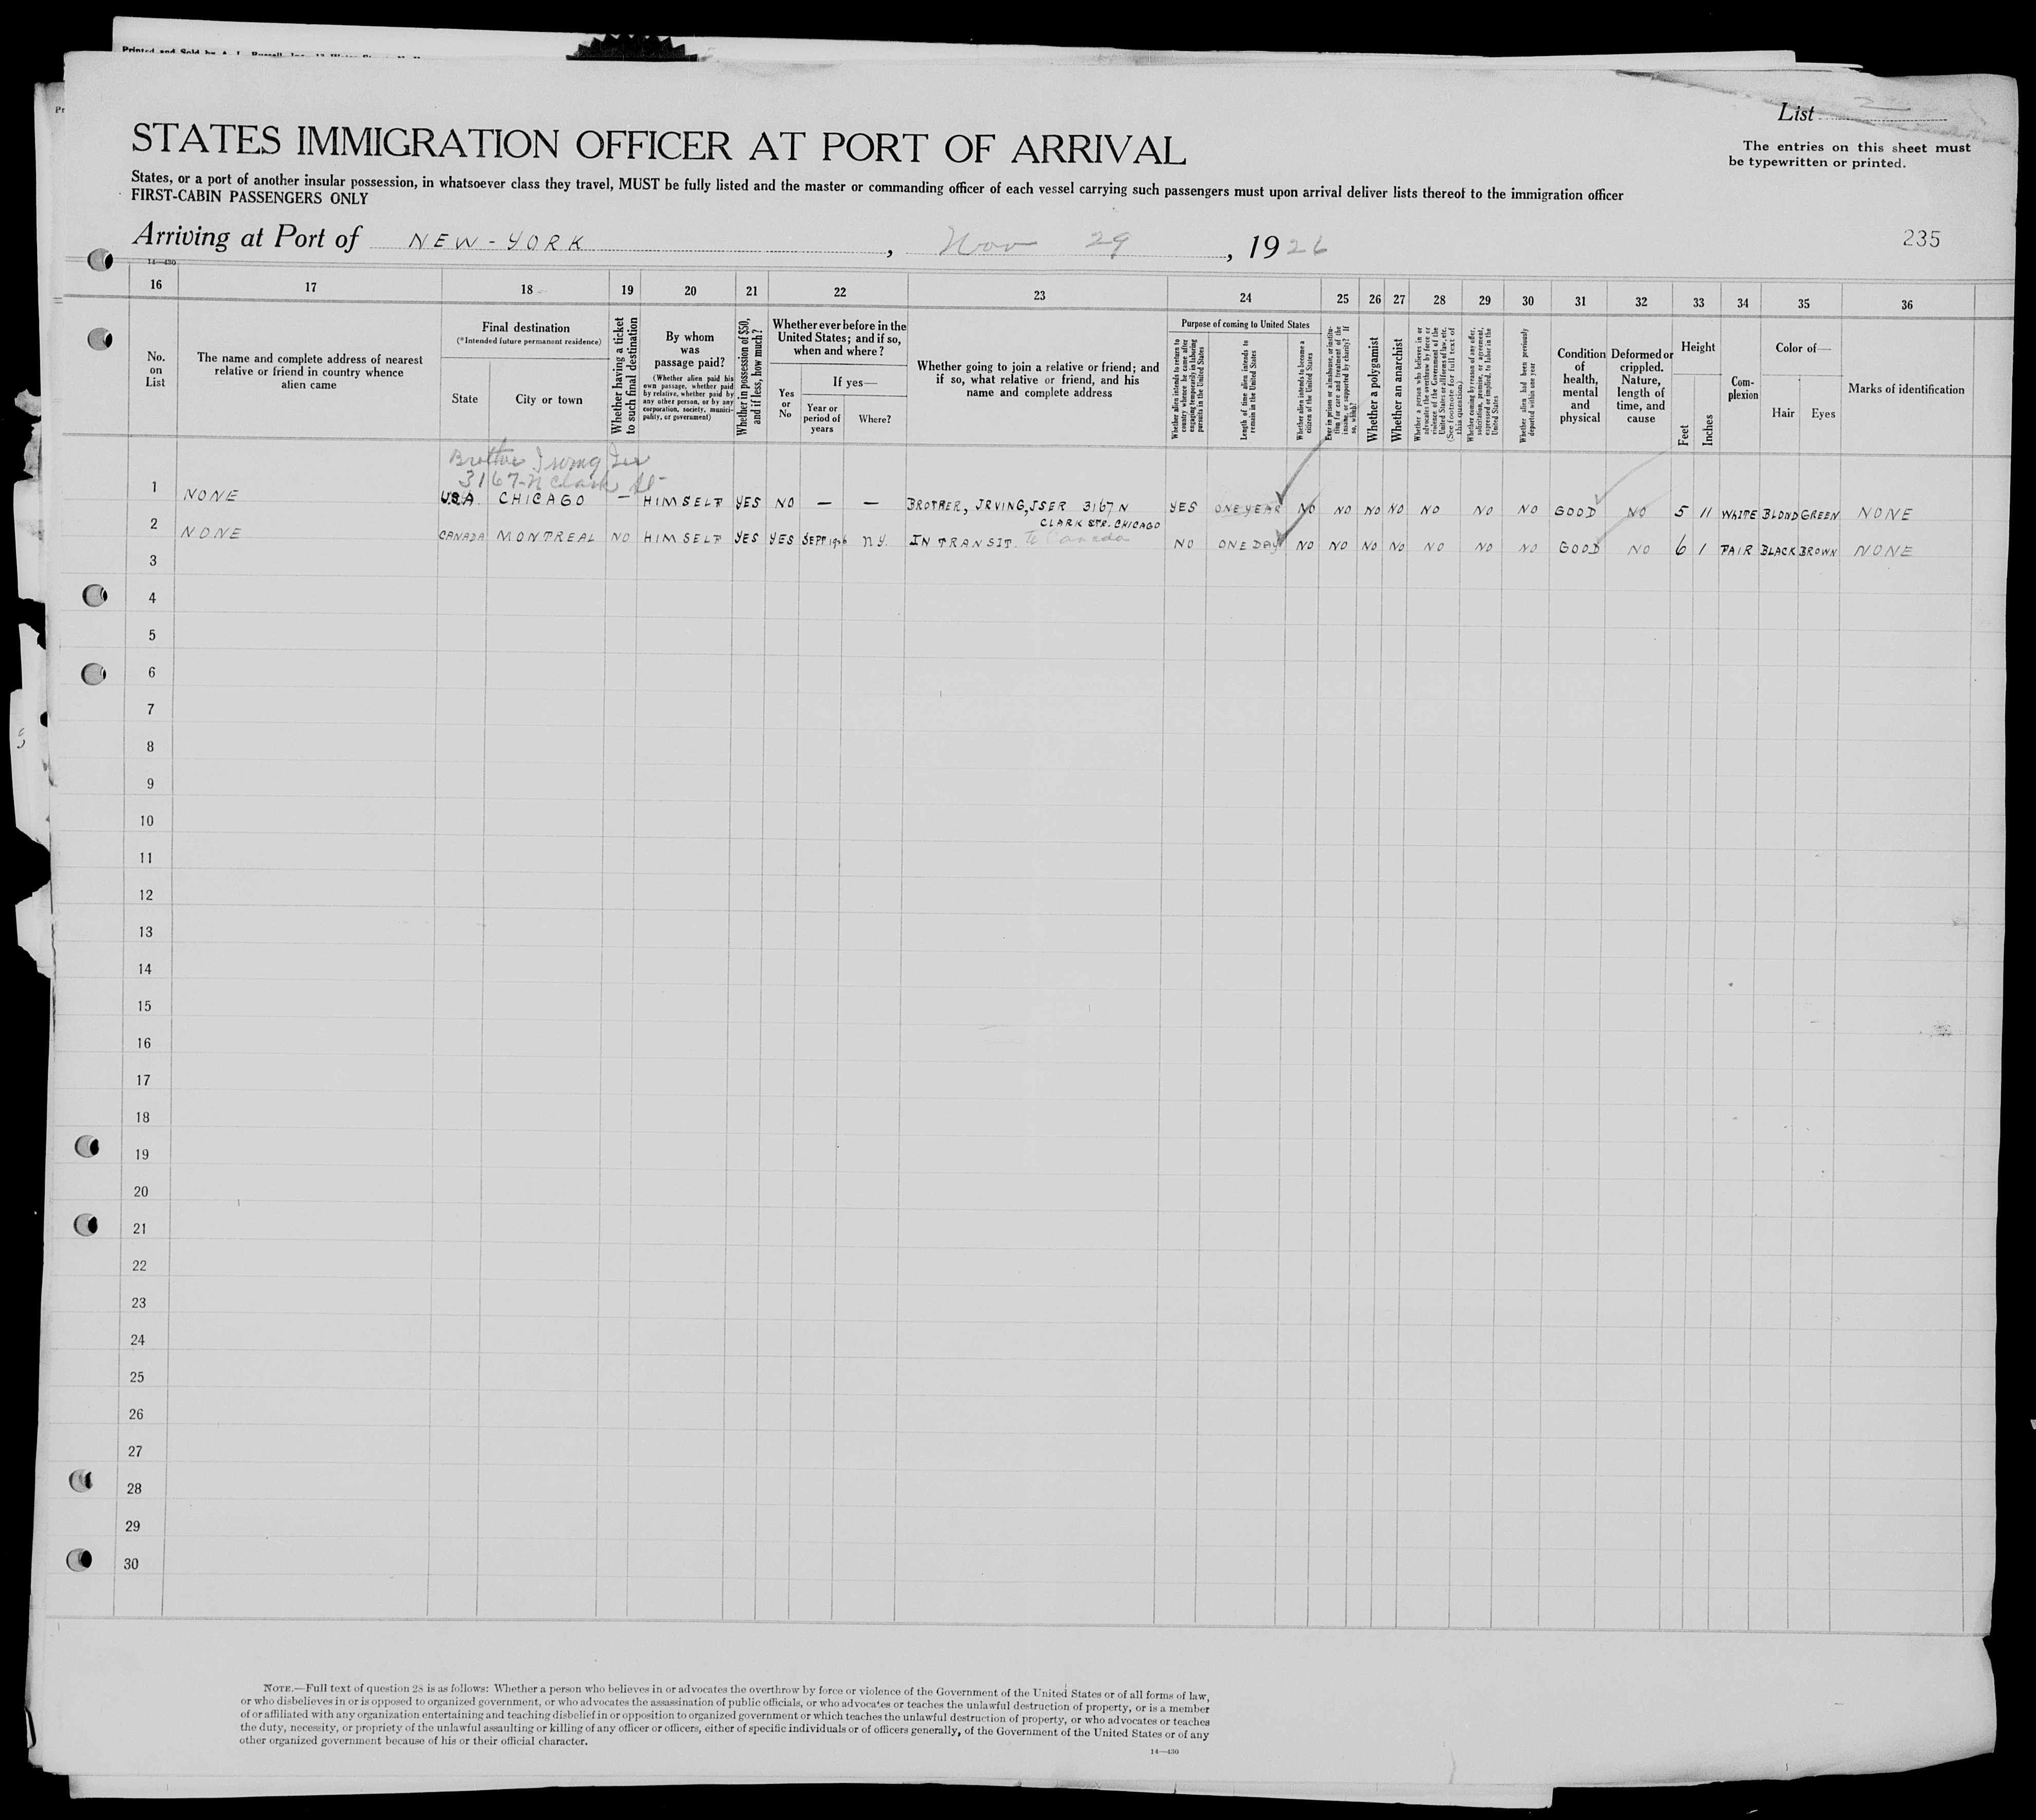 Printed and Sold by
List 2
STATES IMMIGRATION OFFICER AT PORT OF ARRIVAL
The entries on this sheet must
be typewritten or printed.
States, or a port of another insular possession, in whatsoever class they travel, MUST be fully listed and the master or commanding officer of each vessel carrying such passengers must upon arrival deliver lists thereof to the immigration officer
FIRST-CABIN PASSENGERS ONLY
Arriving at Port of NEW-YORK, Nov 29, 1926
235
14—430
16 17 18 19 20 21 22 23 24 25 26 27 28 29 30 31 32 33 34 35 36
No. on List
The name and complete address of nearest relative or friend in country whence alien came
Final destination
(*Intended future permanent residence)
State
City or town
Whether having a ticket to such final destination
By whom was passage paid?
(Whether alien paid his own passage, whether paid by relative, whether paid by any other person, or by any corporation, society, municipality, or government)
Whether in possession of $50, and if less, how much?
Whether ever before in the United States; and if so, when and where?
Yes or No
If yes—
Year or period of years
Where?
Whether going to join a relative or friend; and if so, what relative or friend, and his name and complete address
Purpose of coming to United States
Whether alien intends to return to country whence he came after engaging temporarily in laboring pursuits in the United States
Length of time alien intends to remain in the United States
Whether alien intends to become a citizen of the United States
Ever in prison or almshouse, or institution for care and treatment of the insane, or supported by charity? If so, which?
Whether a polygamist
Whether an anarchist
Whether a person who believes in or advocates the overthrow by force or violence of the Government of the United States or all forms of law, etc. (See footnote for full text of this question)
Whether coming by reason of any offer, solicitation, promise, or agreement, expressed or implied, to labor in the United States
Whether alien had been previously deported within one year
Condition of health, mental and physical
Deformed or crippled. Nature, length of time, and cause
Height
Feet
Inches
Complexion
Color of—
Hair
Eyes
Marks of identification
Brother Irving
3167-N Clark St-
1 NONE U.S.A. CHICAGO — HIMSELF YES NO — — BROTHER, IRVING, ISER 3167 N CLARK STR. CHICAGO YES ONE YEAR NO NO NO NO NO NO NO GOOD NO 5 11 WHITE BLOND GREEN NONE
2 NONE CANADA MONTREAL NO HIMSELF YES YES SEPT 1926 N.Y. IN TRANSIT. To Canada NO ONE DAY NO NO NO NO NO NO NO GOOD NO 6 1 FAIR BLACK BROWN NONE
3
4
5
6
7
8
9
10
11
12
13
14
15
16
17
18
19
20
21
22
23
24
25
26
27
28
29
30
NOTE.—Full text of question 28 is as follows: Whether a person who believes in or advocates the overthrow by force or violence of the Government of the United States or of all forms of law,
or who disbelieves in or is opposed to organized government, or who advocates the assassination of public officials, or who advocates or teaches the unlawful destruction of property, or is a member
of or affiliated with any organization entertaining and teaching disbelief in or opposition to organized government or which teaches the unlawful destruction of property, or who advocates or teaches
the duty, necessity, or propriety of the unlawful assaulting or killing of any officer or officers, either of specific individuals or of officers generally, of the Government of the United States or of any
other organized government because of his or their official character.
14—430